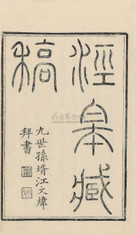 涇皋藏
稿
九世孫壻江文煒
拜書